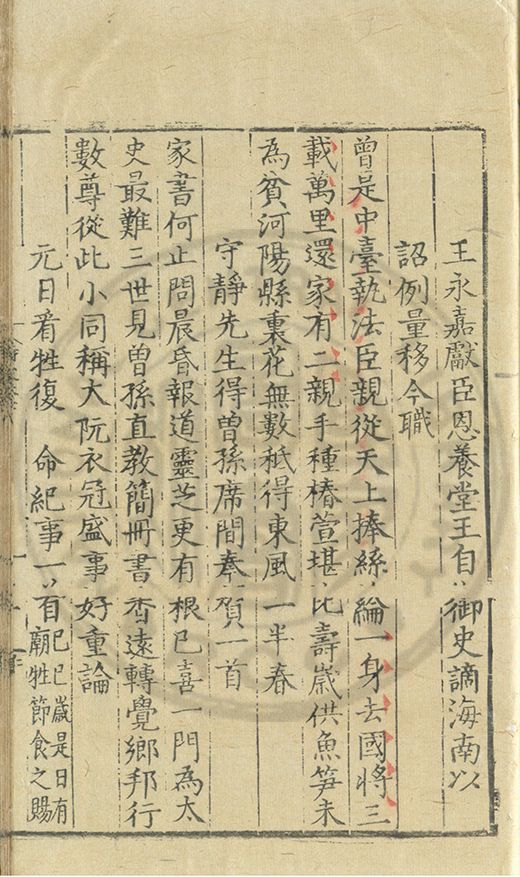 王永嘉獻臣恩養堂王自御史謫海南以
詔例量移今職
曾是中臺執法臣親從天上捧絲綸一身去國將三
載萬里還家有二親手種椿萱堪比壽歲供魚笋未
為貧河陽縣裏花無數秪得東風一半春
守靜先生得曾孫席間奉賀一首
家書何止問晨昏報道靈芝更有根已喜一門為太
史最難三世見曾孫直教簡冊書香遠轉覺鄉邦行
數尊從此小同稱大阮衣冠盛事好重論
元日看牲復 命紀事一首己巳歲是日有廟牲節食之賜